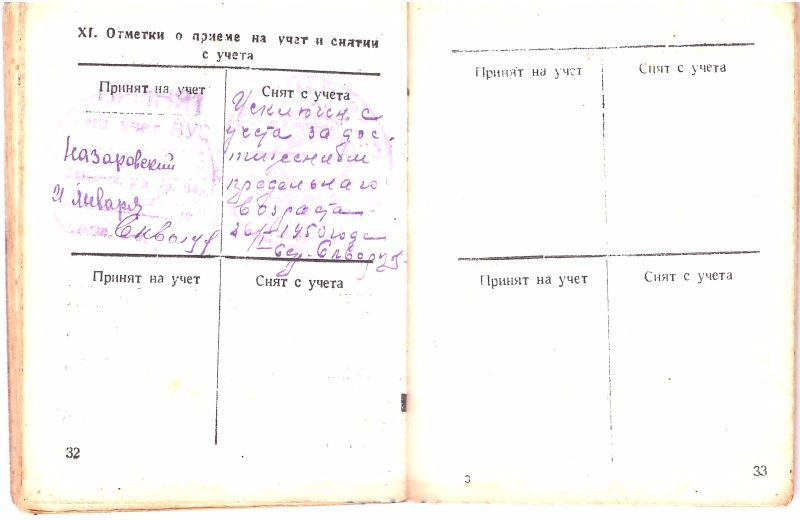 XI. Отметки о приеме на учет и снятии
с учета
Принят на учет
на учет ВУС
Назаровский
21 января
Скворцу
Снят с учета
Исключен с
учета за дос-
тижением
предельного
возраста
26/I-1950 года
Скворцу
Принят на учет
Снят с учета
32
Принят на учет
Снят с учета
Принят на учет
Снят с учета
3
33